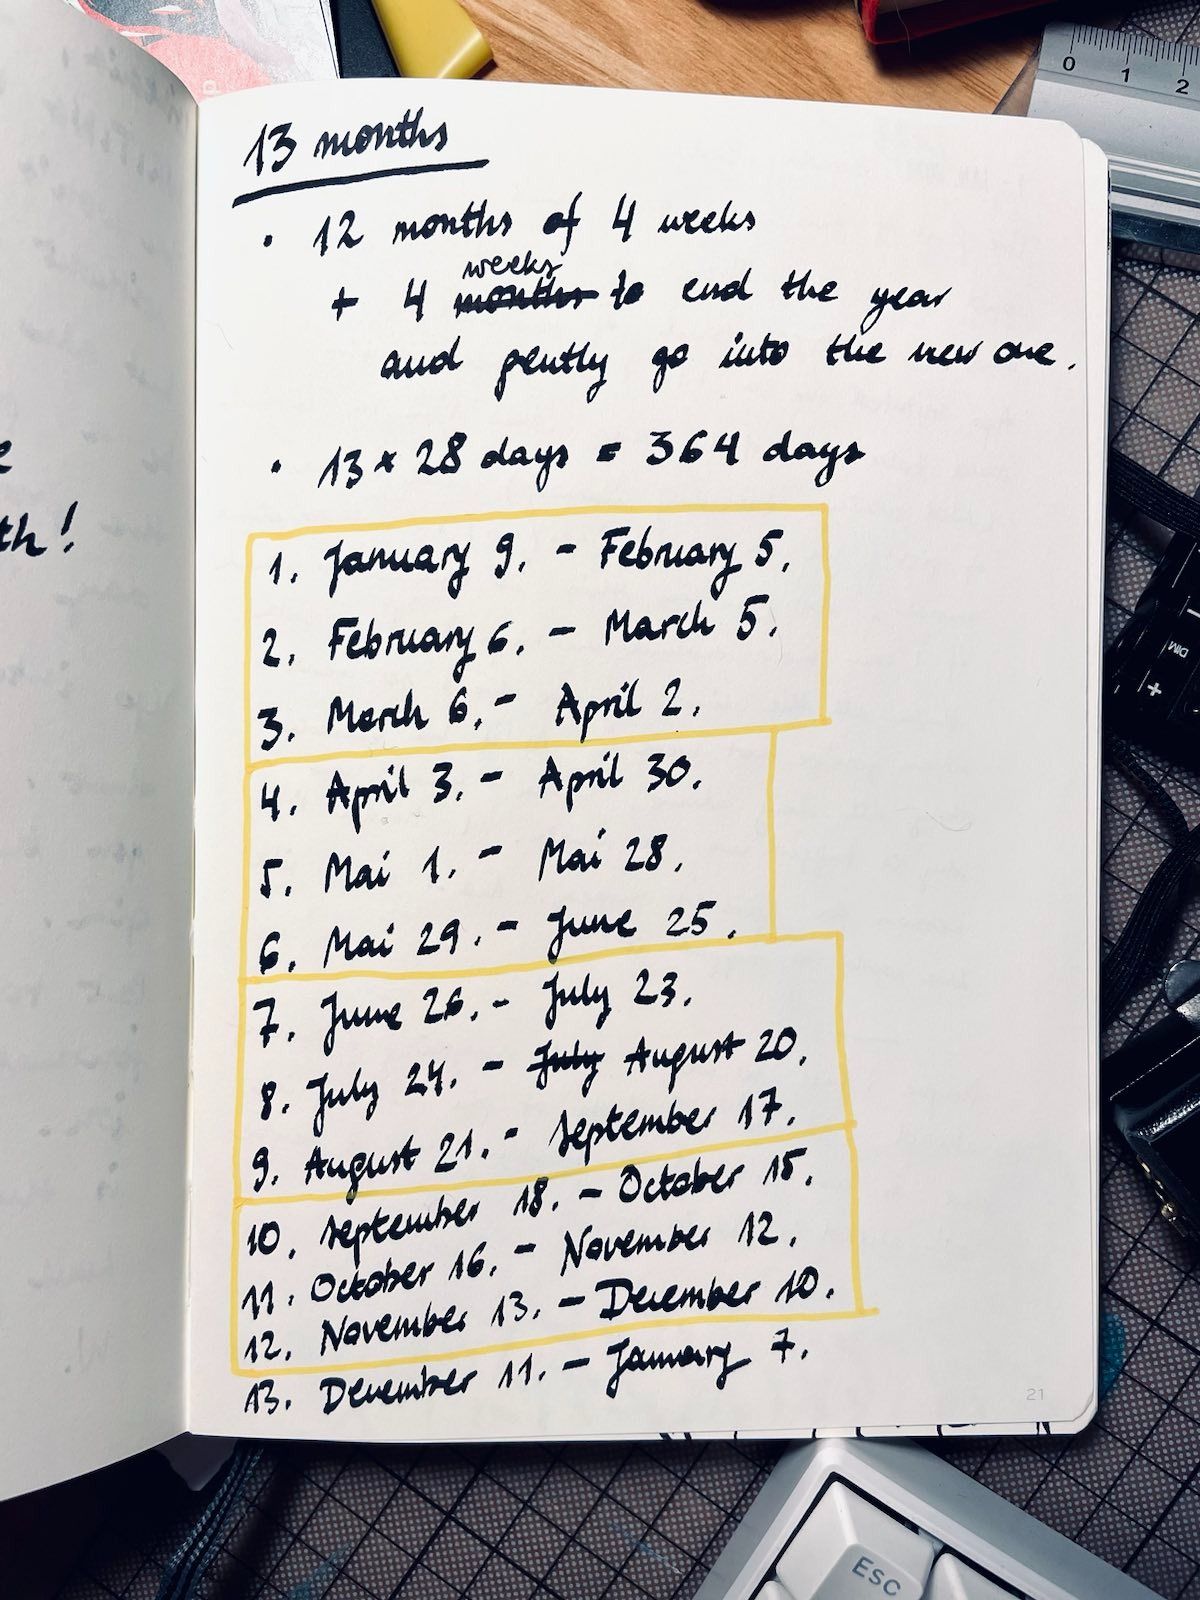 13 months
• 12 months of 4 weeks
weeks
+ 4 months to end the year
and gently go into the new one.
• 13 x 28 days = 364 days
1. January 9. - February 5.
2. February 6. - March 5.
3. March 6. - April 2.
4. April 3. - April 30.
5. Mai 1. - Mai 28.
6. Mai 29. - June 25.
7. June 26. - July 23.
8. July 24. - July August 20.
9. August 21. - September 17.
10. September 18. - October 15.
11. October 16. - November 12.
12. November 13. - December 10.
13. December 11. - January 7.
21
th!
0 1 2
DIM
+
ESC